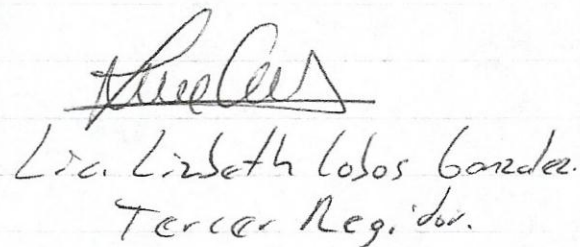 Lic. Lizbeth Lobos Gonzalez.
Tercer Regidor.